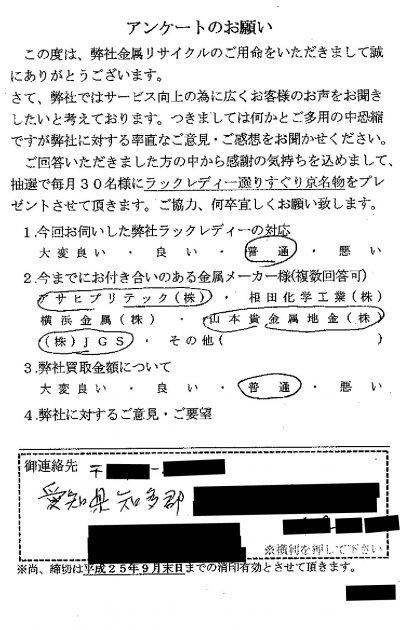 アンケートのお願い
この度は、弊社金属リサイクルのご用命をいただきまして誠
にありがとうございます。
さて、弊社ではサービス向上の為に広くお客様のお声をお聞き
したいと考えております。つきましては何かとご多用の中恐縮
ですが弊社に対する率直なご意見・ご感想をお聞かせください。
ご回答いただきました方の中から感謝の気持ちを込めまして、
抽選で毎月30名様にラックレディー選りすぐり京名物をプレ
ゼントさせて頂きます。ご協力、何卒宜しくお願い致します。
1.今回お伺いした弊社ラックレディーの対応
大変良い ・ 良い ・ 普通 ・ 悪い
2.今までにお付き合いのある金属メーカー様(複数回答可)
アサヒプリテック(株) ・ 相田化学工業(株)
横浜金属(株) ・ 山本貴金属地金(株)
(株)JGS ・ その他( )
3.弊社買取金額について
大変良い ・ 良い ・ 普通 ・ 悪い
4.弊社に対するご意見・ご要望
御連絡先 〒 -
愛知県知多郡
※横判を押して下さい
※尚、締切は平成25年9月末日までの消印有効とさせて頂きます。